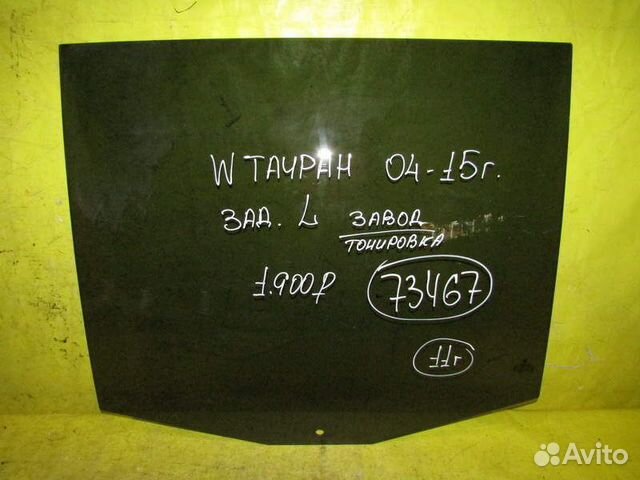 W ТАУРАН 04-15г.
ЗАД. L ЗАВОД
ТОНИРОВКА
1.900₽ 73467
11г
Avito